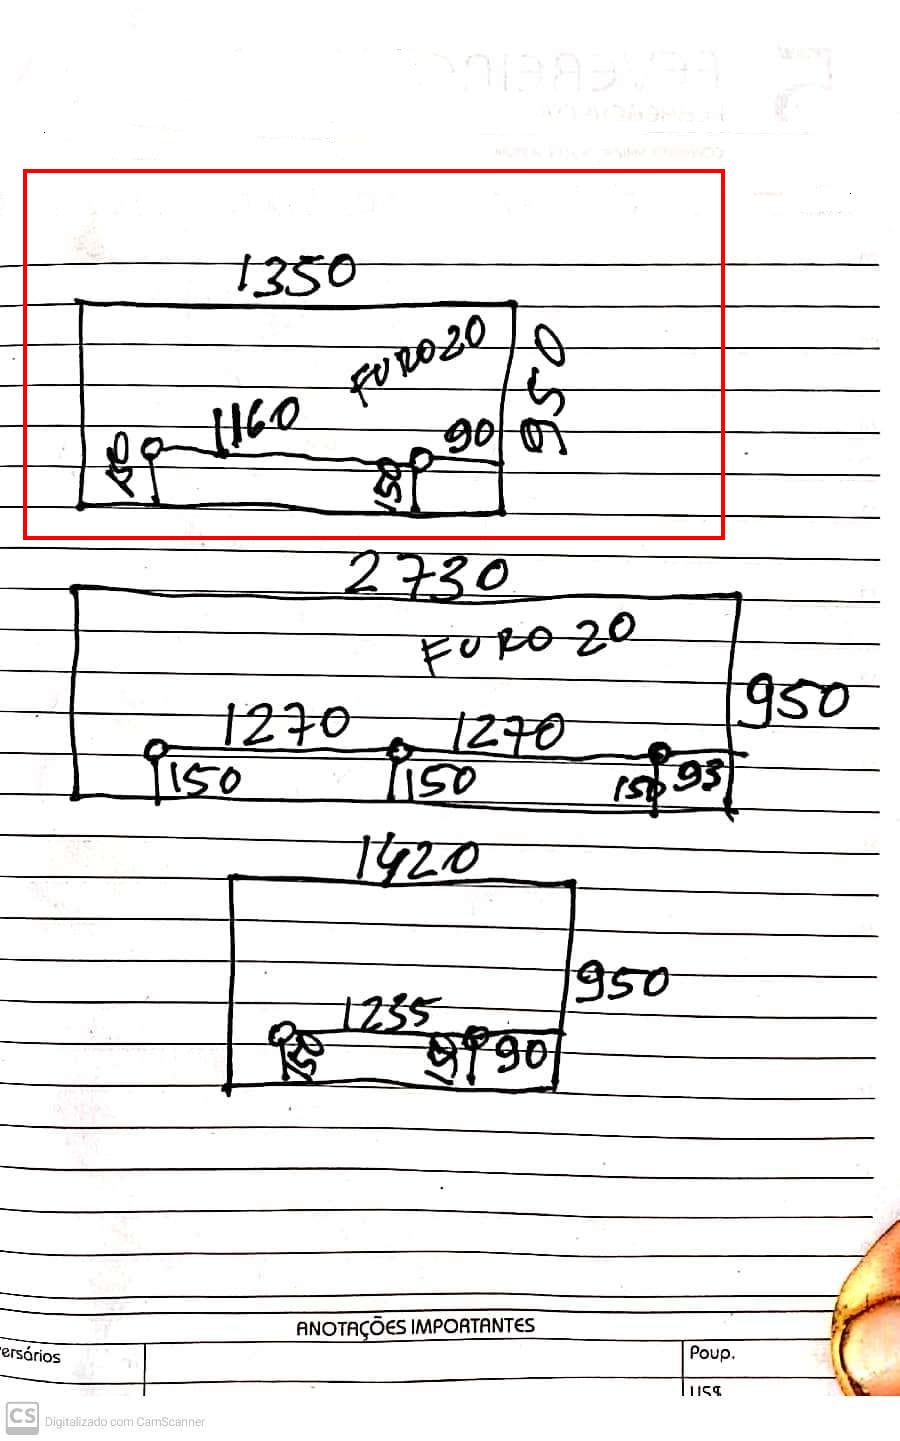 1350
FURO 20
950
1160
90
150
2730
FURO 20
950
1270 1270
150 150 150 93
1420
950
1235
150 150 90
ANOTAÇÕES IMPORTANTES
ersários
Poup.
US$
CS Digitalizado com CamScanner